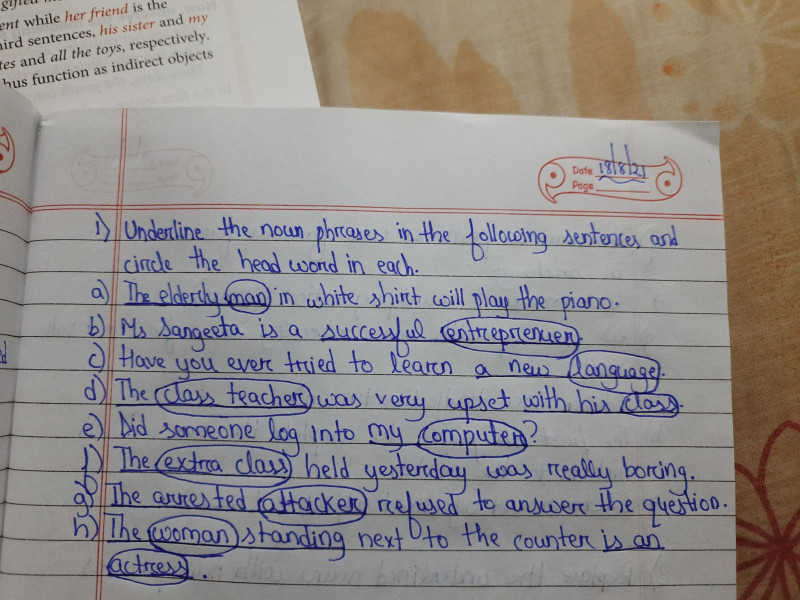 ent while her friend is the
ird sentences, his sister and my
tes and all the toys, respectively.
hus function as indirect objects
Date 18/8/21
Page
i) Underline the noun phrases in the following sentences and
circle the head word in each.
a) The elderly man in white shirt will play the piano.
b) Ms Sangeeta is a successful entreprenuer.
c) Have you ever tried to learn a new language.
d) The class teacher was very upset with his class.
e) Did someone log into my computer?
f) The extra class held yesterday was really boring.
g) The arrested attacker refused to answer the question.
h) The woman standing next to the counter is an
actress.